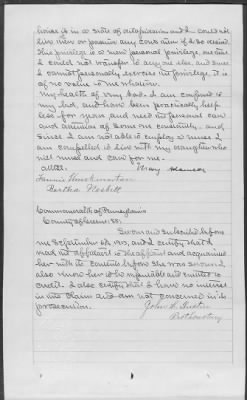 house is in a state of dilapidation and I could not
live there or possess any cows even if I so desired.
This privilege is a mere personal privilege, one that
I could not transfer to any one else, and since
I cannot personally exercise the privilege, it is
of no value to me whatever.
My health is very bad. I am confined to
my bed, and have been practically help
less for years and need the personal care
and attention of some one constantly. and
since I am not able to employ a nurse I
am compelled to live with my daughter who
will nurse and care for me.
Attest. Mary
Fannie
Bertha Nesbitt
Commonwealth of Pennsylvania
County of SS:
Sworn and subscribed before
me September 6, 1910, and I certify that I
read the affidavit to the affiant and acquainted
her with the contents before she was sworn. I
also know her to be reputable and entitled to
credit. I also certify that I have no interest
in this claim and am not concerned in its
prosecution.
John
Prothonotary